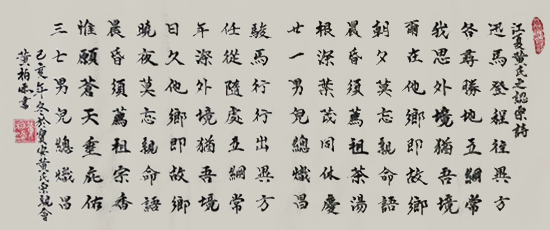 江夏黃氏之認宗詩
迅馬登程往異方
各尋勝地立綱常
我思外境猶吾境
爾在他鄉即故鄉
朝夕莫忘親命語
晨昏須薦祖茶湯
根深葉茂同休慶
廿一男兒總熾昌
駿馬行行出異方
任從隨處立綱常
年深外境猶吾境
日久他鄉即故鄉
曉夜莫忘親命語
晨昏須薦祖宗香
惟願蒼天垂庇佑
三七男兒總熾昌
己亥年冬於寶安黃氏宗親會
黃柏書